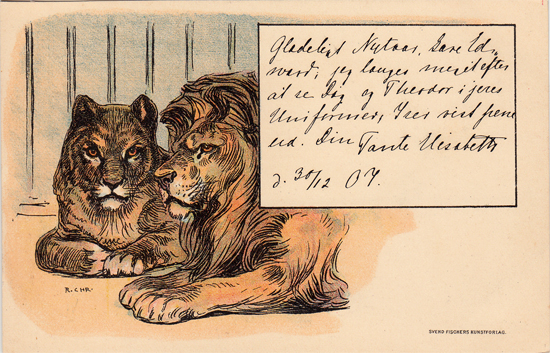 Glædeligt Nytaar, kære Ed-
ward; jeg længes meget efter
at se Dig og Theodor i jeres
Uniformer, I ser vist pæne
ud. Din Tante Elisabeth
d. 30/12 07.
R. CHR.
SVEND FISCKERS KUNSTFORLAG.